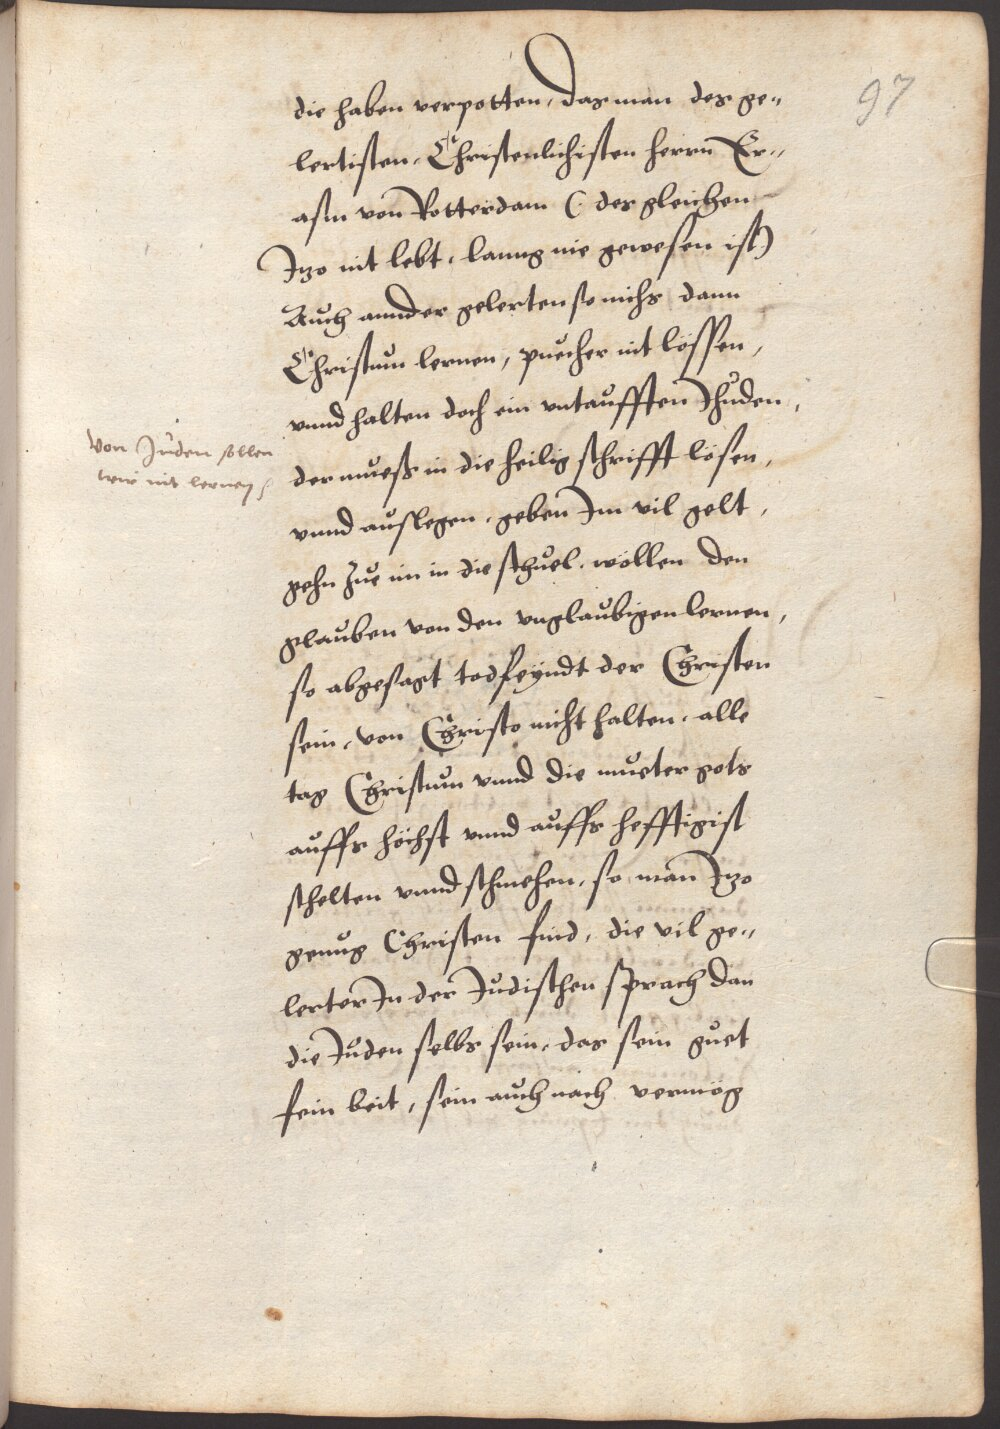 97
die haben verpotten, das man des ge„
lertisten, Christenlichisten herrn Er„
asm von Rotterdam (des gleichen
Jtzo nit lebt, lanng nie gewesen ist)
Auch annder gelerten so nichs dann
Christum lernen, puecher nit lössen,
vnnd halten doch ein vntaufften Juden,
der mueß in die heilig schrifft lösen,
vnnd auslegen, geben Jm vil gelt,
gehn zue im in die schuel, wöllen den
glauben von den vnglaubigen lernen,
so abgesagt todfeyndt der Christen
sein, von Christo nicht halten, alle
tag Christum vnnd die mueter gots
auffs höchst vnnd auffs hefftigist
schelten vnnd schmehen, so man Jtzo
genug Christen find, die vil ge„
lerter Jn der Judischen sprach dan
die Juden selbs sein, das sein guet
fein leit, sein auch nach vermög
Von Juden sollen
wir nit lernen